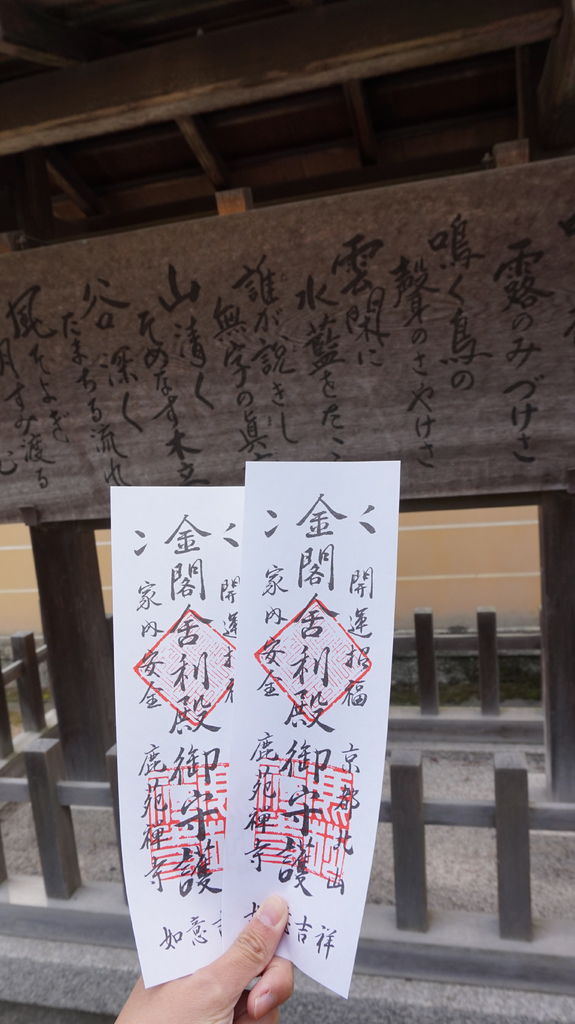 露のみづけさ
鳴く鳥の
聲のさやけさ
雲閑に
水藍をたゝ
誰が説きし
無字の眞
山清く
そめなす木立
谷深く
たまちる流れ
風そよぎ
月すみ渡る
開運
金閣舎利殿御守護
家内安全
鹿苑禅寺
如意
開運招福
京都北山
金閣舎利殿御守護
家内安全
鹿苑禅寺
吉祥